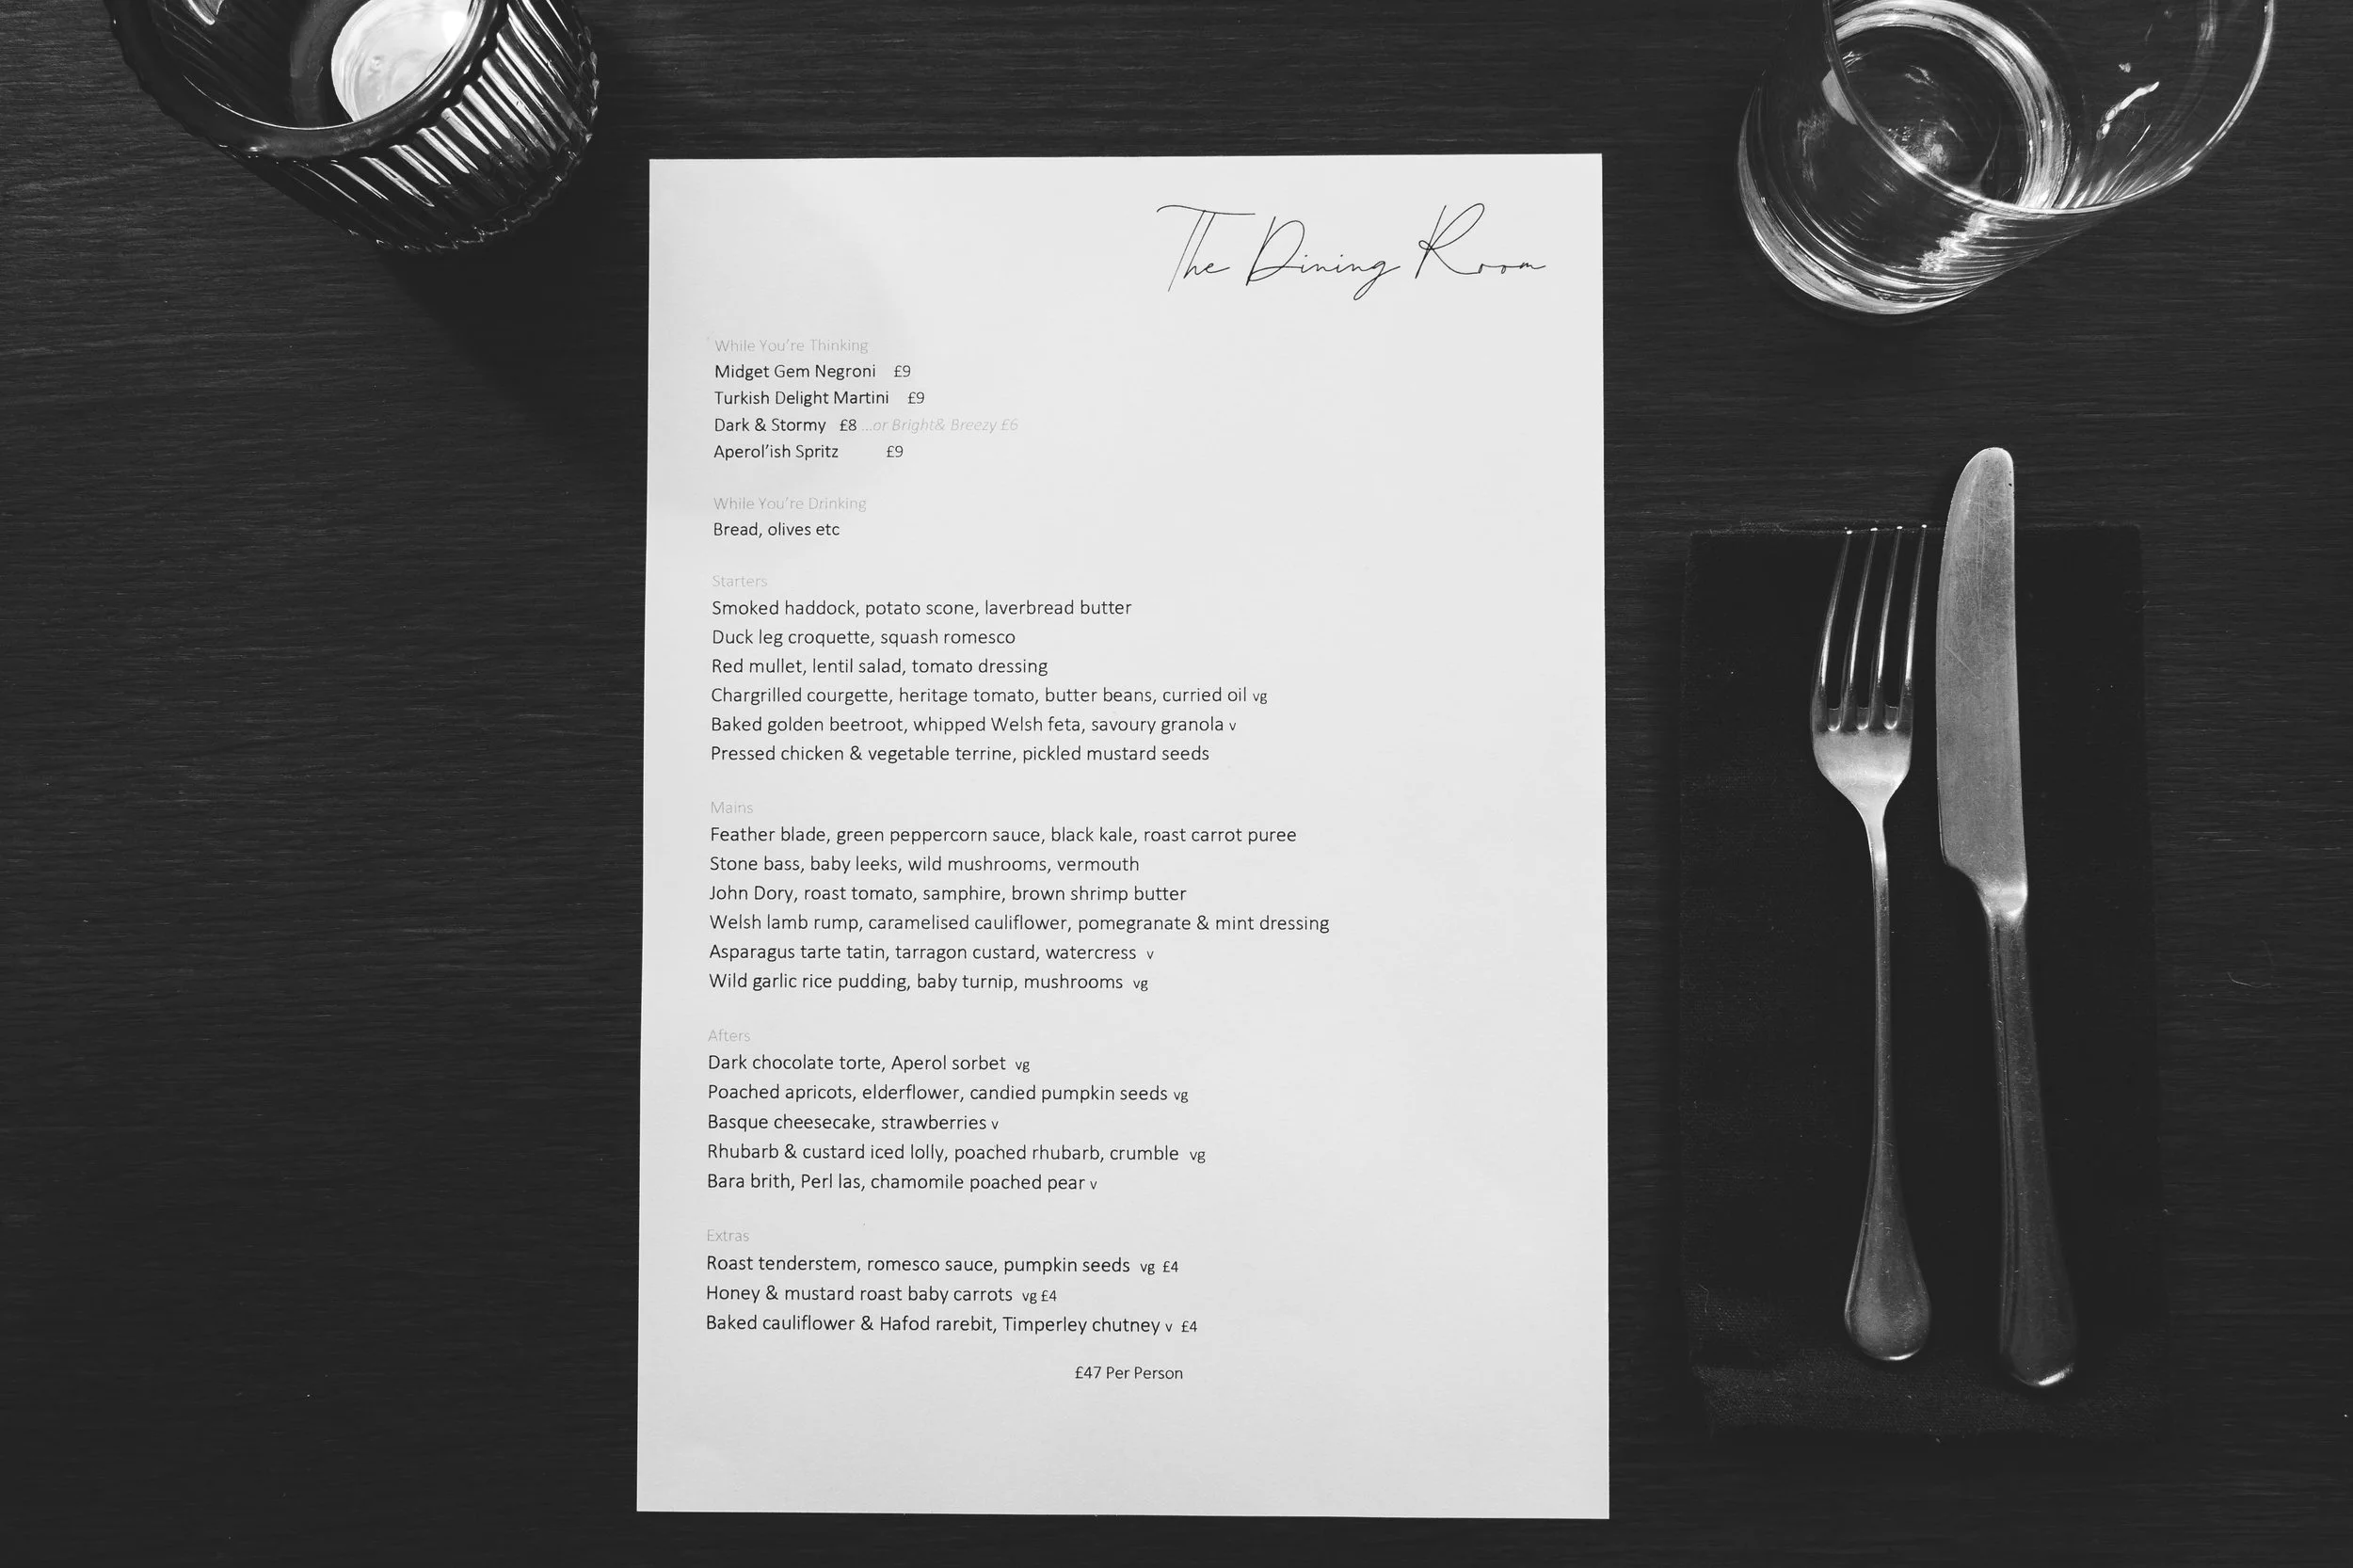 The Dining Room
While You're Thinking
Midget Gem Negroni £9
Turkish Delight Martini £9
Dark & Stormy £8 ...or Bright& Breezy £6
Aperol'ish Spritz £9
While You're Drinking
Bread, olives etc
Starters
Smoked haddock, potato scone, laverbread butter
Duck leg croquette, squash romesco
Red mullet, lentil salad, tomato dressing
Chargrilled courgette, heritage tomato, butter beans, curried oil vg
Baked golden beetroot, whipped Welsh feta, savoury granola v
Pressed chicken & vegetable terrine, pickled mustard seeds
Mains
Feather blade, green peppercorn sauce, black kale, roast carrot puree
Stone bass, baby leeks, wild mushrooms, vermouth
John Dory, roast tomato, samphire, brown shrimp butter
Welsh lamb rump, caramelised cauliflower, pomegranate & mint dressing
Asparagus tarte tatin, tarragon custard, watercress v
Wild garlic rice pudding, baby turnip, mushrooms vg
Afters
Dark chocolate torte, Aperol sorbet vg
Poached apricots, elderflower, candied pumpkin seeds vg
Basque cheesecake, strawberries v
Rhubarb & custard iced lolly, poached rhubarb, crumble vg
Bara brith, Perl las, chamomile poached pear v
Extras
Roast tenderstem, romesco sauce, pumpkin seeds vg £4
Honey & mustard roast baby carrots vg £4
Baked cauliflower & Hafod rarebit, Timperley chutney v £4
£47 Per Person